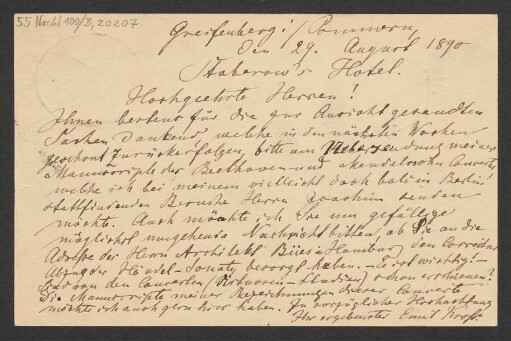 55 Nachl 100/B, 20207
Greifenberg i/Pommern,
den 29. August 1890
Staberow's Hotel.
Hochgeehrte Herren!
Ihnen bestens für die zur Ansicht gesandten
Sachen dankend, welche in den nächsten Wochen
zurückerfolgen, bitte um Uebersendung meiner
Manuscripte der Beethoven und Mendelssohn Concerte,
welche ich bei meinem vielleicht doch bald in Berlin
stattfindenden Besuche Herrn Joachim senden
möchte. Auch möchte ich Sie um gefällige
möglichst umgehende Nachricht bitten, ob Sie an die
Adresse des Herrn Architekt in Hamburg den
Abzug der Händel-Sonate besorgt haben. Ist wichtig!
Sind von den Concerten schon erschienen?
Die Manuscripte meiner Bezeichnungen dieser Concerte
möchte ich auch gern hier haben. In vorzüglicher Hochachtung
Ihr ergebenster Emil Kross.